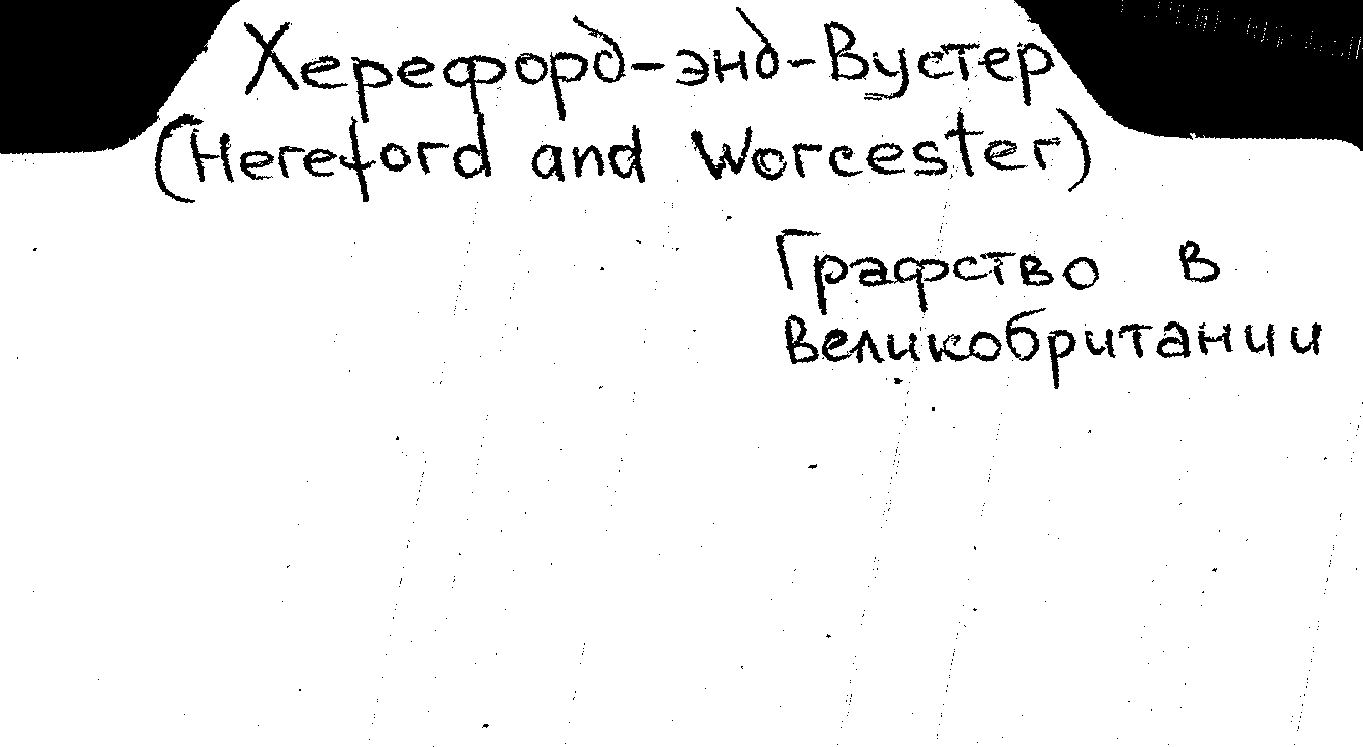 Херефорд-энд-Вустер
(Hereford and Worcester)
Графство в
Великобритании